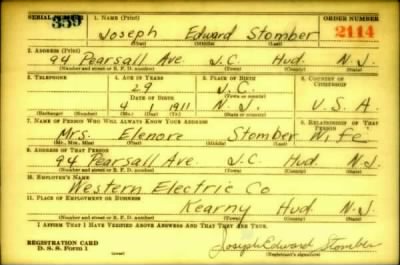 SERIAL NUMBER 1. NAME (Print) ORDER NUMBER
359 Joseph Edward Stomber 2114
(First) (Middle) (Last)
2. ADDRESS (Print)
94 Pearsall Ave. J.C. Hud. N.J.
(Number and street or R. F. D. number) (Town) (County) (State)
3. TELEPHONE 4. AGE IN YEARS 5. PLACE OF BIRTH 6. COUNTRY OF CITIZENSHIP
29 J.C.
DATE OF BIRTH (Town) (County)
4 1 1911 N.J. U.S.A.
(Exchange) (Number) (Mo.) (Day) (Yr.) (State or country)
7. NAME OF PERSON WHO WILL ALWAYS KNOW YOUR ADDRESS 8. RELATIONSHIP OF THAT PERSON
Mrs. Elenore Stomber Wife
(Mr., Mrs., Miss) (First) (Middle) (Last)
9. ADDRESS OF THAT PERSON
94 Pearsall Ave. J.C. Hud. N.J.
(Number and street or R. F. D. number) (Town) (County) (State)
10. EMPLOYER'S NAME
Western Electric Co
11. PLACE OF EMPLOYMENT OR BUSINESS
Kearny Hud. N.J.
(Number and street or R. F. D. number) (Town) (County) (State)
I AFFIRM THAT I HAVE VERIFIED ABOVE ANSWERS AND THAT THEY ARE TRUE.
REGISTRATION CARD
D. S. S. Form 1 (over) Joseph Edward Stomber
(Registrant's signature)